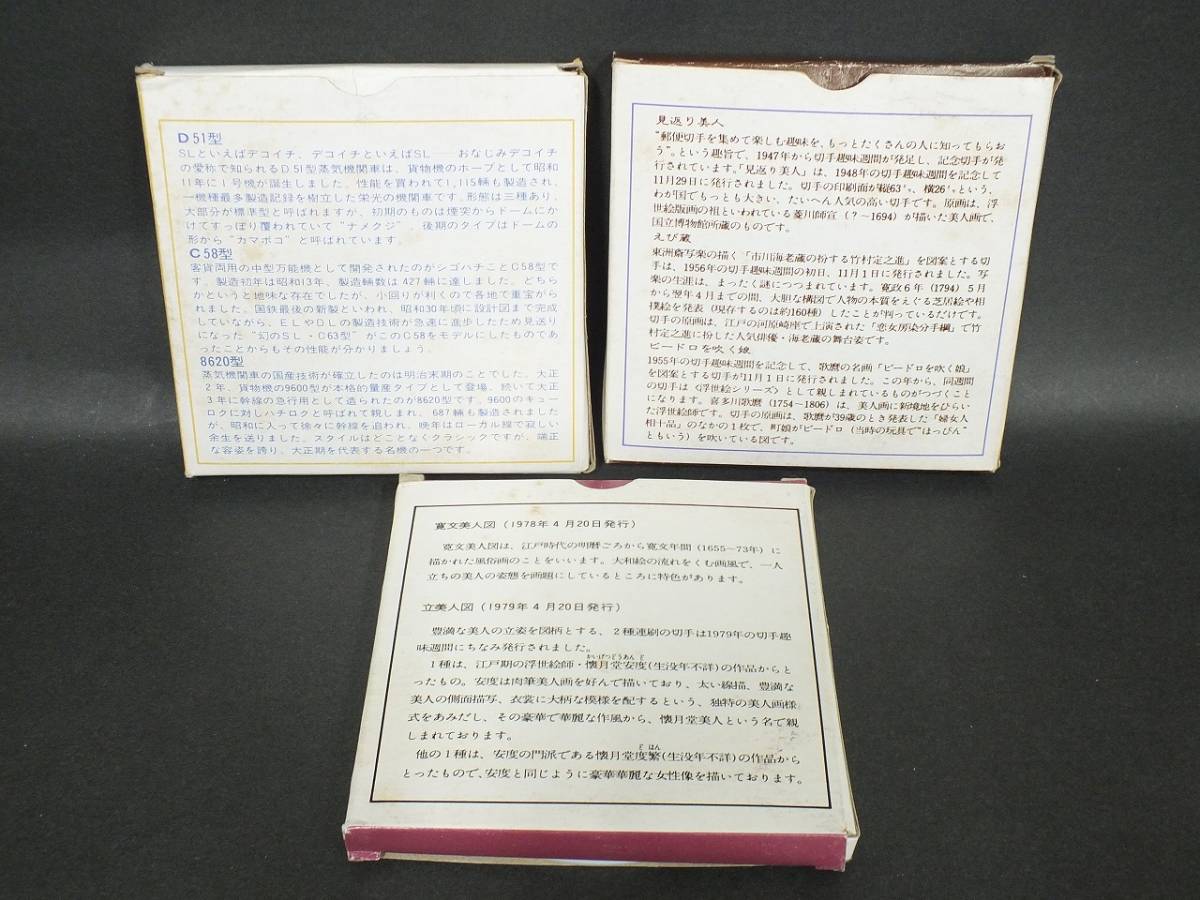 D51型
SLといえばデコイチ、デコイチといえばSL── おなじみデコイチ
の愛称で知られるD51型蒸気機関車は、貨物機のホープとして昭和
11年に1号機が誕生しました。性能を買われて1,115輛も製造され、
一機種最多製造記録を樹立した栄光の機関車です。形態は三種あり、
大部分が標準型と呼ばれますが、初期のものは煙突からドームにか
けてすっぽり覆われていて“ナメクジ”、後期のタイプはドームの
形から“カマボコ”と呼ばれています。
C58型
客貨両用の中型万能機として開発されたのがシゴハチことC58型で
す。製造初年は昭和13年、製造輛数は427輛に達しました。どちら
かというと地味な存在でしたが、小回りが利くので各地で重宝がら
れました。国鉄最後の新製といわれ、昭和30年頃に設計図まで完成
していながら、ELやDLの製造技術が急速に進歩したため見送り
になった“幻のSL・C63型”がこのC58をモデルにしたものであ
ったことからもその性能が分かりましょう。
8620型
蒸気機関車の国産技術が確立したのは明治末期のことでした。大正
2年、貨物機の9600型が本格的量産タイプとして登場、続いて大正
3年に幹線の急行用として造られたのが8620型です。9600のキュー
ロクに対しハチロクと呼ばれて親しまれ、687輛も製造されました
が、昭和に入って徐々に幹線を追われ、晩年はローカル線で寂しい
余生を送りました。スタイルはどことなくクラシックですが、端正
な容姿を誇り、大正期を代表する名機の一つです。
見返り美人
“郵便切手を集めて楽しむ趣味を、もっとたくさんの人に知ってもらお
う”という趣旨で、1947年から切手趣味週間が発足し、記念切手が発
行されています。「見返り美人」は、1948年の切手趣味週間を記念して
11月29日に発行されました。切手の印刷面が縦63㍉、横26㍉という、
わが国でもっとも大きい、たいへん人気の高い切手です。原画は、浮
世絵版画の祖といわれている菱川師宣(?〜1694)が描いた美人画で、
国立博物館所蔵のものです。
えび蔵
東洲斎写楽の描く「市川海老蔵の扮する竹村定之進」を図案とする切
手は、1956年の切手趣味週間の初日、11月1日に発行されました。写
楽の生涯は、まったく謎につつまれています。寛政6年(1794)5月
から翌年4月までの間、大胆な構図で人物の本質をえぐる芝居絵や相
撲絵を発表(現存するのは約160種)したことが判っているだけです。
切手の原画は、江戸の河原崎座で上演された「恋女房染分手綱」で竹
村定之進に扮した人気俳優・海老蔵の舞台姿です。
ビードロを吹く娘
1955年の切手趣味週間を記念して、歌麿の名画「ビードロを吹く娘」
を図案とする切手が11月1日に発行されました。この年から、同週間
の切手は〈浮世絵シリーズ〉として親しまれているものがつづくこと
になります。喜多川歌麿(1754〜1806)は、美人画に新境地をひらい
た浮世絵師です。切手の原画は、歌麿が39歳のとき発表した「婦女人
相十品」のなかの1枚で、町娘がビードロ(当時の玩具で“ほっぴん”
ともいう)を吹いている図です。
寛文美人図(1978年4月20日発行)
寛文美人図は、江戸時代の明暦ごろから寛文年間(1655〜73年)に
描かれた風俗画のことをいいます。大和絵の流れをくむ画風で、一人
立ちの美人の姿態を画題にしているところに特色があります。
立美人図(1979年4月20日発行)
豊満な美人の立姿を図柄とする、2種連刷の切手は1979年の切手趣
味週間にちなみ発行されました。
かいげつどうあんど
1種は、江戸期の浮世絵師・懐月堂安度(生没年不詳)の作品からと
ったもの。安度は肉筆美人画を好んで描いており、太い線描、豊満な
美人の側面描写、衣裳に大柄な模様を配するという、独特の美人画様
式をあみだし、その豪華で華麗な作風から、懐月堂美人という名で親
しまれております。
どはん
他の1種は、安度の門派である懐月堂度繁(生没年不詳)の作品から
とったもので、安度と同じように豪華華麗な女性像を描いております。